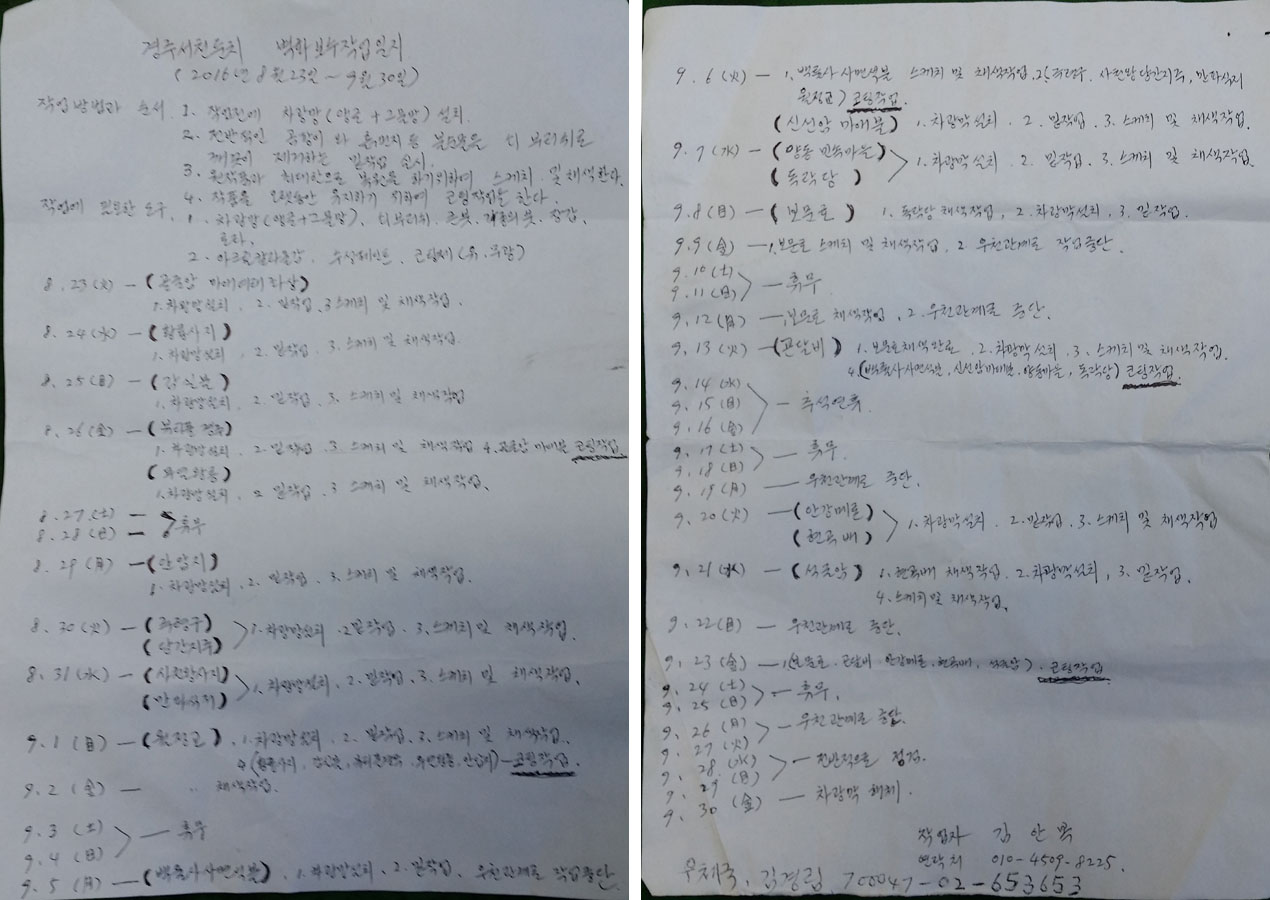 경주서천둔치 벽화보수작업일지
(2016년 8월 23일 ~ 9월 30일)
작업방법과 순서 1. 작업전에 차광망(앵글+그물망) 설치.
2. 전반적인 곰팡이 와 흙먼지 등 불순물을 티 브러쉬로
깨끗이 제거하는 밑작업 실시.
3. 원작품과 최대한으로 복원을 하기위하여 스케치 및 채색한다.
4. 작품을 오랫동안 유지하기 위하여 코팅작업을 한다.
작업에 필요한 도구. 1. 차광망(앵글+그물망), 티브러쉬, 큰붓, 각종의붓, 장갑,
로라,
2. 아크릴칼라물감, 수성페인트, 코팅제(유.무광)
8. 23 (火) - (골굴암 마애여래좌상)
1. 차광망설치, 2. 밑작업, 3 스케치 및 채색작업.
8. 24 (水) - (황룡사지)
1. 차광망설치, 2. 밑작업, 3. 스케치 및 채색작업.
8. 25 (目) - (감실불)
1. 차광망설치, 2. 밑작업, 3. 스케치및 채색작업
8. 26 (金) - (뷰티풀 경주)
1. 차광망설치, 2. 밑작업, 3. 스케치 및 채색작업 4. 골굴암 마애불 코팅작업.
1. 차광망설치, 2 밑작업, 3 스케치 및 채색작업.
8. 27 (土) -
8. 28 (日) - 휴무
8. 29 (月) - (안압지)
1. 차광망설치, 2. 밑작업, 3. 스케치 및 채색작업.
8. 30 (火) -
(당간지주) 1. 차광망설치, 2 밑작업, 3. 스케치 및 채색작업.
8. 31 (水) - (사천왕사지)
1. 차광망설치, 2. 밑작업, 3. 스케치 및 채색작업.
9. 1 (目) - (월정교), 1. 차광망설치, 2. 밑작업, 3. 스케치 및 채색작업.
4. - 코팅작업.
9. 2 (金) - " 채색작업.
9. 3 (土) - 휴무
9. 4 (日)
9. 5 (月) - (백률사사면석불), 1. 차광망설치, 2. 밑작업. 우천관계로 작업중단.
9. 6 (火) - 1. 백률사 사면석불 스케치 및 채색작업.
월정교) 코팅작업.
(신선암 마애불) 1. 차광막설치, 2. 밑작업, 3. 스케치 및 채색작업.
9. 7 (水) - (양동 민속마을)
(독락당) 1. 차광막설치 2. 밑작업, 3. 스케치 및 채색작업.
9. 8 (目) - (보문호) 1. 독락당 채색작업, 2. 차광막설치, 3. 밑작업.
9. 9 (金) - 1. 보문호 스케치 및 채색작업, 2 우천관계로 작업중단.
9. 10 (土)
9. 11 (日) - 휴무.
9. 12 (月) - 1. 보문호 채색작업, 2. 우천관계로 중단.
9. 13 (火) - 1. 보문호채색완료, 2. 차광막설치, 3. 스케치 및 채색작업.
4. (백률사사면석불, 신선암마애불, 양동마을, 독락당) 코팅작업.
9. 14 (水)
9. 15 (目) - 추석연휴.
9. 16 (金)
9. 17 (土) - 휴무.
9. 18 (日)
9. 19 (月) - 우천관계로 중단.
9. 20 (火) - (안강메론)
(현곡배) 1. 차광막설치, 2. 밑작업, 3. 스케치 및 채색작업
9. 21 (水) - (석굴암) 1. 현곡배 채색작업, 2. 차광막설치, 3. 밑작업.
4. 스케치및 채색작업.
9. 22 (目) - 우천관계로 중단.
9. 23 (金) - 1. (보문호, 곤달비, 안강메론, 현곡배, 석굴암), 코팅작업
9. 24 (土) - 휴무.
9. 25 (日)
9. 26 (月) - 우천관계로 중단.
9. 27 (火)
9. 28 (水) - 전반적으로 점검.
9. 29 (目)
9. 30 (金) - 차광막 해체.
작업자 김 안 복
연락처 010-4509-8225.
우체국, 김경림, 700047-02-653653